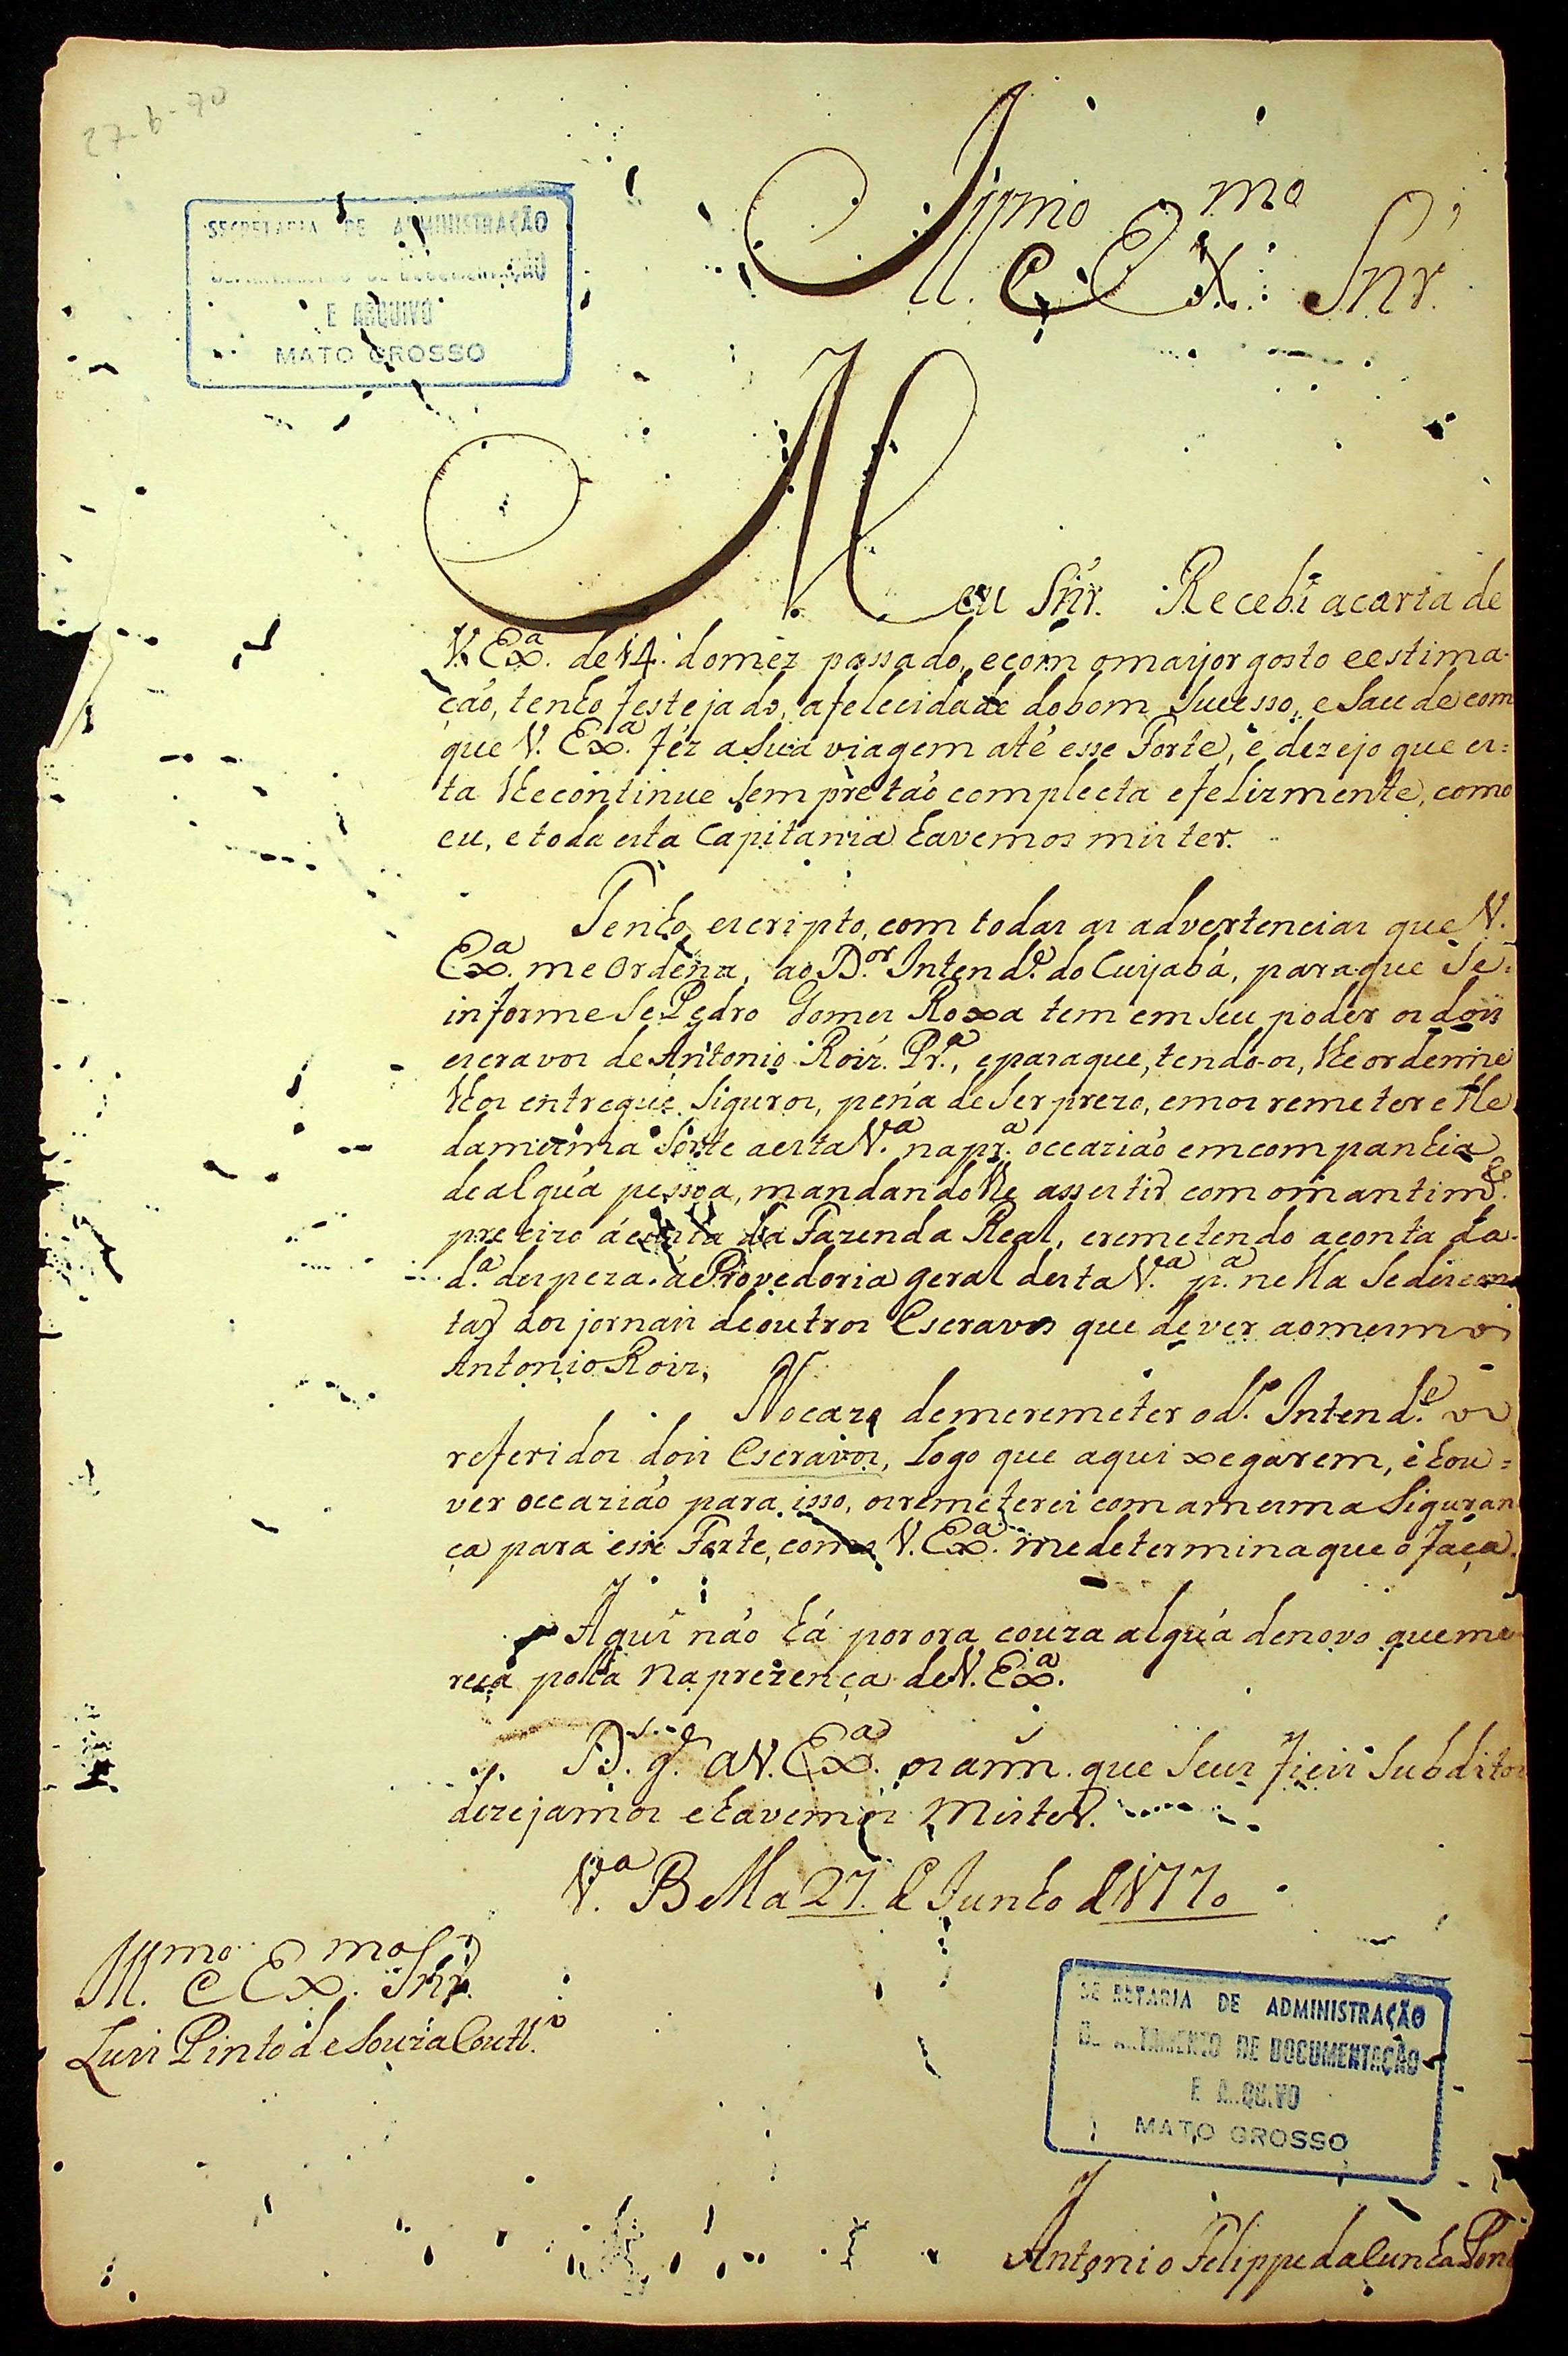 27-6-70
SECRETARIA DE ADMINISTRAÇÃO
DEPARTAMENTO DE DOCUMENTAÇÃO
E ARQUIVO
MATO GROSSO
Illmo. e Exmo. Snr.
Meu Snr. Recebi acarta de
V. Exa. de 14. domêz passado, ecom omayor gosto eestima-
ção, tenho festejado, afelecidade dobom Sucesso, e Saude com
que V. Exa. féz aSua viagem até esse Forte, e dezejo que es=
ta lhecontinue Sempre taõ complecta efelizmente, como
eu, e toda esta Capitania havemos mister.
Tenho escripto, com todas as advertencias que V.
Exa. me Ordena, ao Dor. Intende. do Cuyabá, paraque Se=
informe Se Pedro Gomes Roxa tem em Seu poder os doïs
escravos de Antonio Roiz. Pra., eparaque, tendo-os, lhe ordenne
lhos entregue Siguros, pena de Ser prezo, emos remeter elle
damesma Sorte aesta Va. na pra. occazião emcompanhia
dealguá pessoa, mandandolhe assestir com omantimto.
precizo ácusta da Fazenda Real, eremetendo aconta da-
da. despeza. áProvedoria geral desta Va. pa. nella Sedescon
tar dos jornais deoutros Escravos que dever aomesmo
Antonio Roiz,
Nocazo demeremeter odo. Intende. os
referidos dois Escravos, Logo que aqui xegarem, ehou=
ver occazião para isso, osremeterei com amesma Siguran
ça para esse Forte, como V. Exa. medeterminaque o faça.
Aqui não há porora couza alguá denovo queme
reça posta Naprezença deV. Exa.
Ds. ge. aV. Exa. os anns. que Seus fieis Subditos
dezejamos ehavemos Mister.
Va. Bella 27. de Junho de 1770
Illmo. e Exmo. Snr.
Luis Pinto de Souza Coutto.
SECRETARIA DE ADMINISTRAÇÃO
DEPARTAMENTO DE DOCUMENTAÇÃO
E ARQUIVO
MATO GROSSO
Antonio Felippe da Cunha